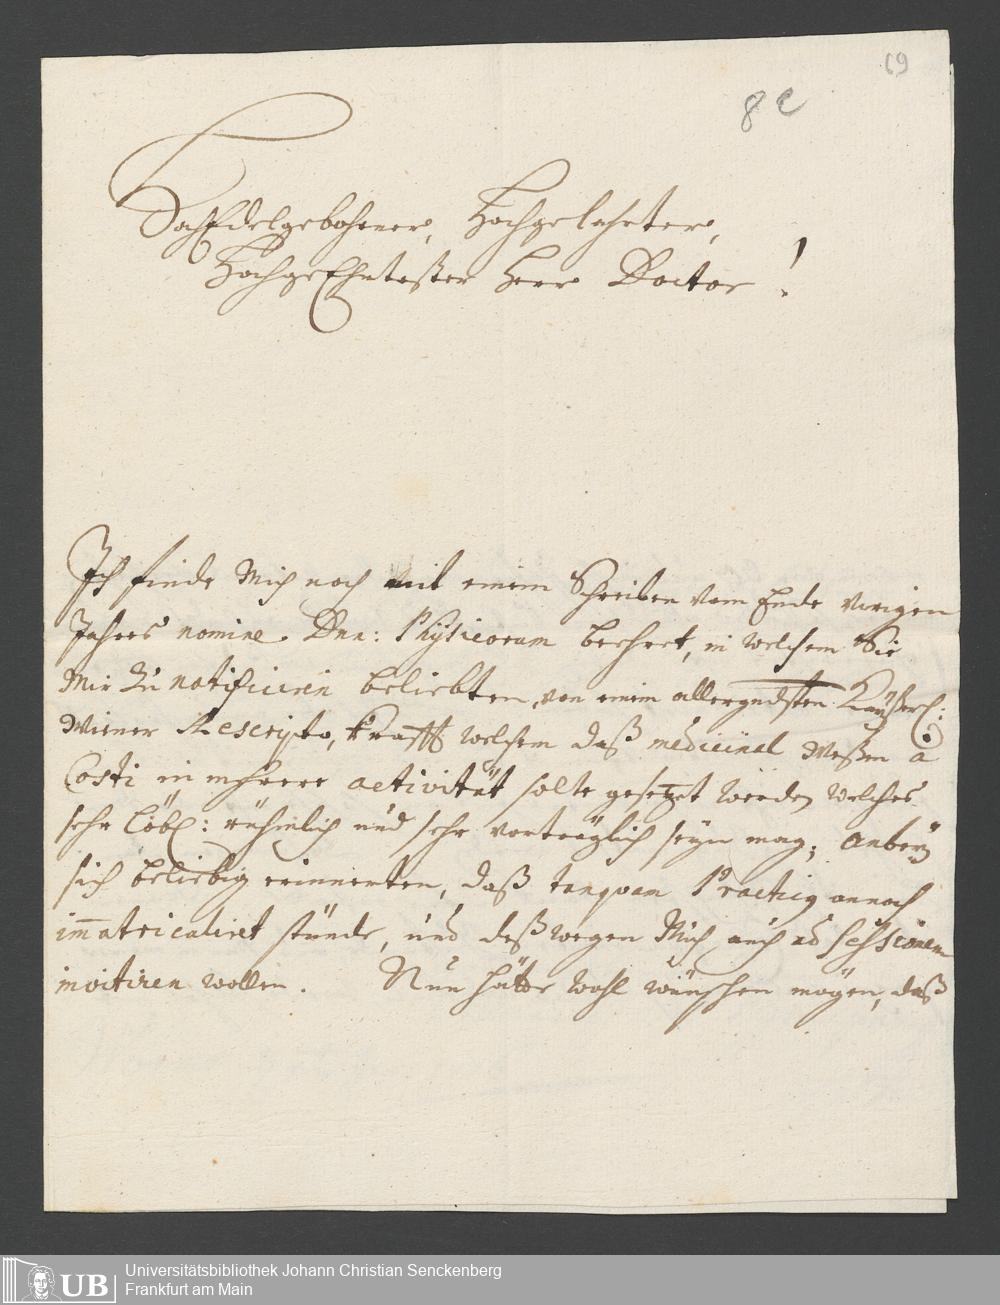 69
8 e
HochEdelgebohrner, Hochgelahrter,
HochgeEhrtester Herr Doctor!
Ich finde Mich noch mit einem Schreiben vom Ende vorigen
Jahres nomine Dnn: Physicorum beehret, in welchem Sie
Mir zu notificiren beliebten, von einem allergndsten Kayserl:
Wiener Rescripto, krafft welchem daß medicinal Weßen a
Costi in mehrere activität solte gesetzet werden, welches
sehr löbl: rühmlich und sehr vorträglich seyn mag, anbey
sich beliebig erinnerten, daß tanquam Practicq annoch
immatriculiret stünde, und deßwegen Mich auch ad Sessionem
invitiren wollen. Nun hätte wohl wünschen mögen, daß
UB
Universitätsbibliothek Johann Christian Senckenberg
Frankfurt am Main